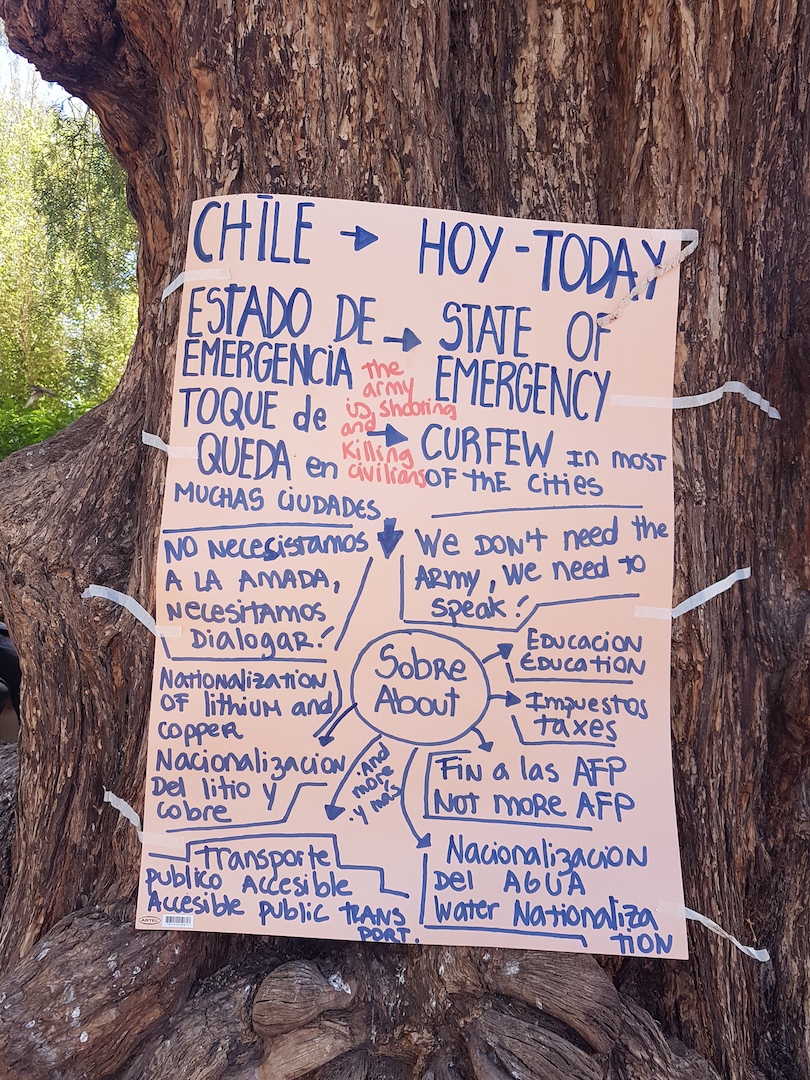 CHILE → HOY - TODAY
ESTADO DE → STATE OF
EMERGENCIA EMERGENCY
the
army
is shooting
and
killing
civilians
TOQUE de → CURFEW IN MOST
QUEDA en OF THE CITIES
MUCHAS CIUDADES
NO NeceSistamos
A LA AMADA,
NeceSitamos
Dialogar!
We DON't need the
ARMY, We need to
speak!
Sobre
About
EDUCACION
EDUCATION
Impuestos
taxes
FIN a las AFP
NOT more AFP
Nationalization
OF lithium and
copper
Nacionalizacion
Del litio y
cobre
And
more
y mas
transporte
publico Accesible
Accesible public TRANS
PORT.
Nacionalizacion
Del AGUA
Water Nationaliza
TION
ARTEL